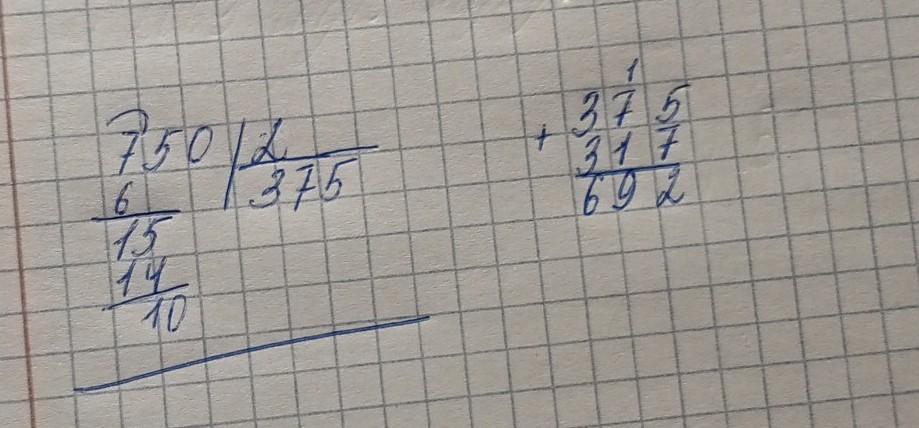 750 | 2
6 375
15
14
10
1
375
+
317
692